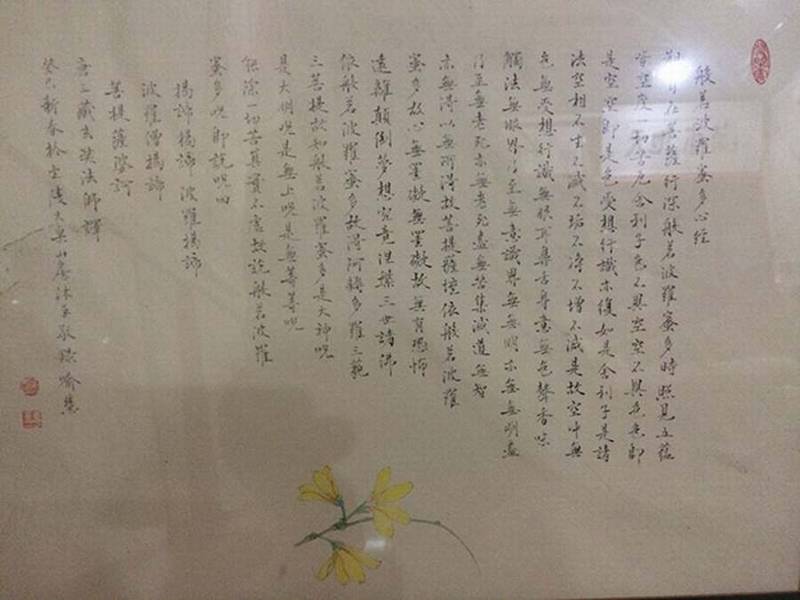 般若波羅蜜多心經
觀自在菩薩行深般若波羅蜜多時照見五蘊
皆空度一切苦厄舍利子色不異空空不異色色即
是空空即是色受想行識亦復如是舍利子是諸
法空相不生不滅不垢不淨不增不減是故空中無
色無受想行識無眼耳鼻舌身意無色聲香味
觸法無眼界乃至無意識界無無明亦無無明盡
乃至無老死亦無老死盡無苦集滅道無智
亦無得以無所得故菩提薩埵依般若波羅
蜜多故心無罣礙無罣礙故無有恐怖
遠離顛倒夢想究竟涅槃三世諸佛
依般若波羅蜜多故得阿耨多羅三藐
三菩提故知般若波羅蜜多是大神咒
是大明咒是無上咒是無等等咒
能除一切苦真實不虛故說般若波羅
蜜多咒即說咒曰
揭諦揭諦 波羅揭諦
波羅僧揭諦
菩提薩婆訶
唐三藏玄奘法師譯
癸巳新春於